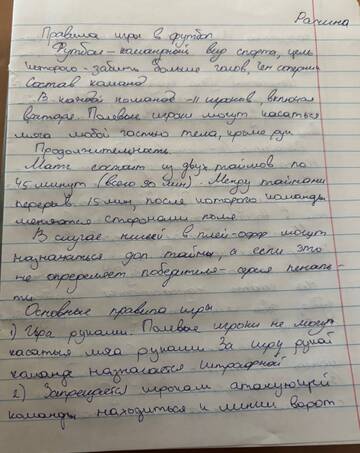 Рапина
Правила игры в футбол
Футбол - командный вид спорта, цель
которого - забить больше голов, чем соперник
Состав команд
В каждой команде - 11 игроков, включая
вратаря. Полевые игроки могут касаться
мяча любой частью тела, кроме рук
Продолжительность
Матч состоит из двух таймов по
45 минут (всего 90 мин). Между таймами
перерыв 15 мин, после которого команды
меняются сторонами поля
В случае ничьей в плей-офф могут
назначаться доп таймы, а если это
не определяет победителя - серия пеналь-
ти
Основные правила игры
1) Игра руками. Полевые игроки не могут
касаться мяча руками За игру рукой
команде назначается штрафной
2) Запрещается игрокам атакующей
команды находиться к линии ворот